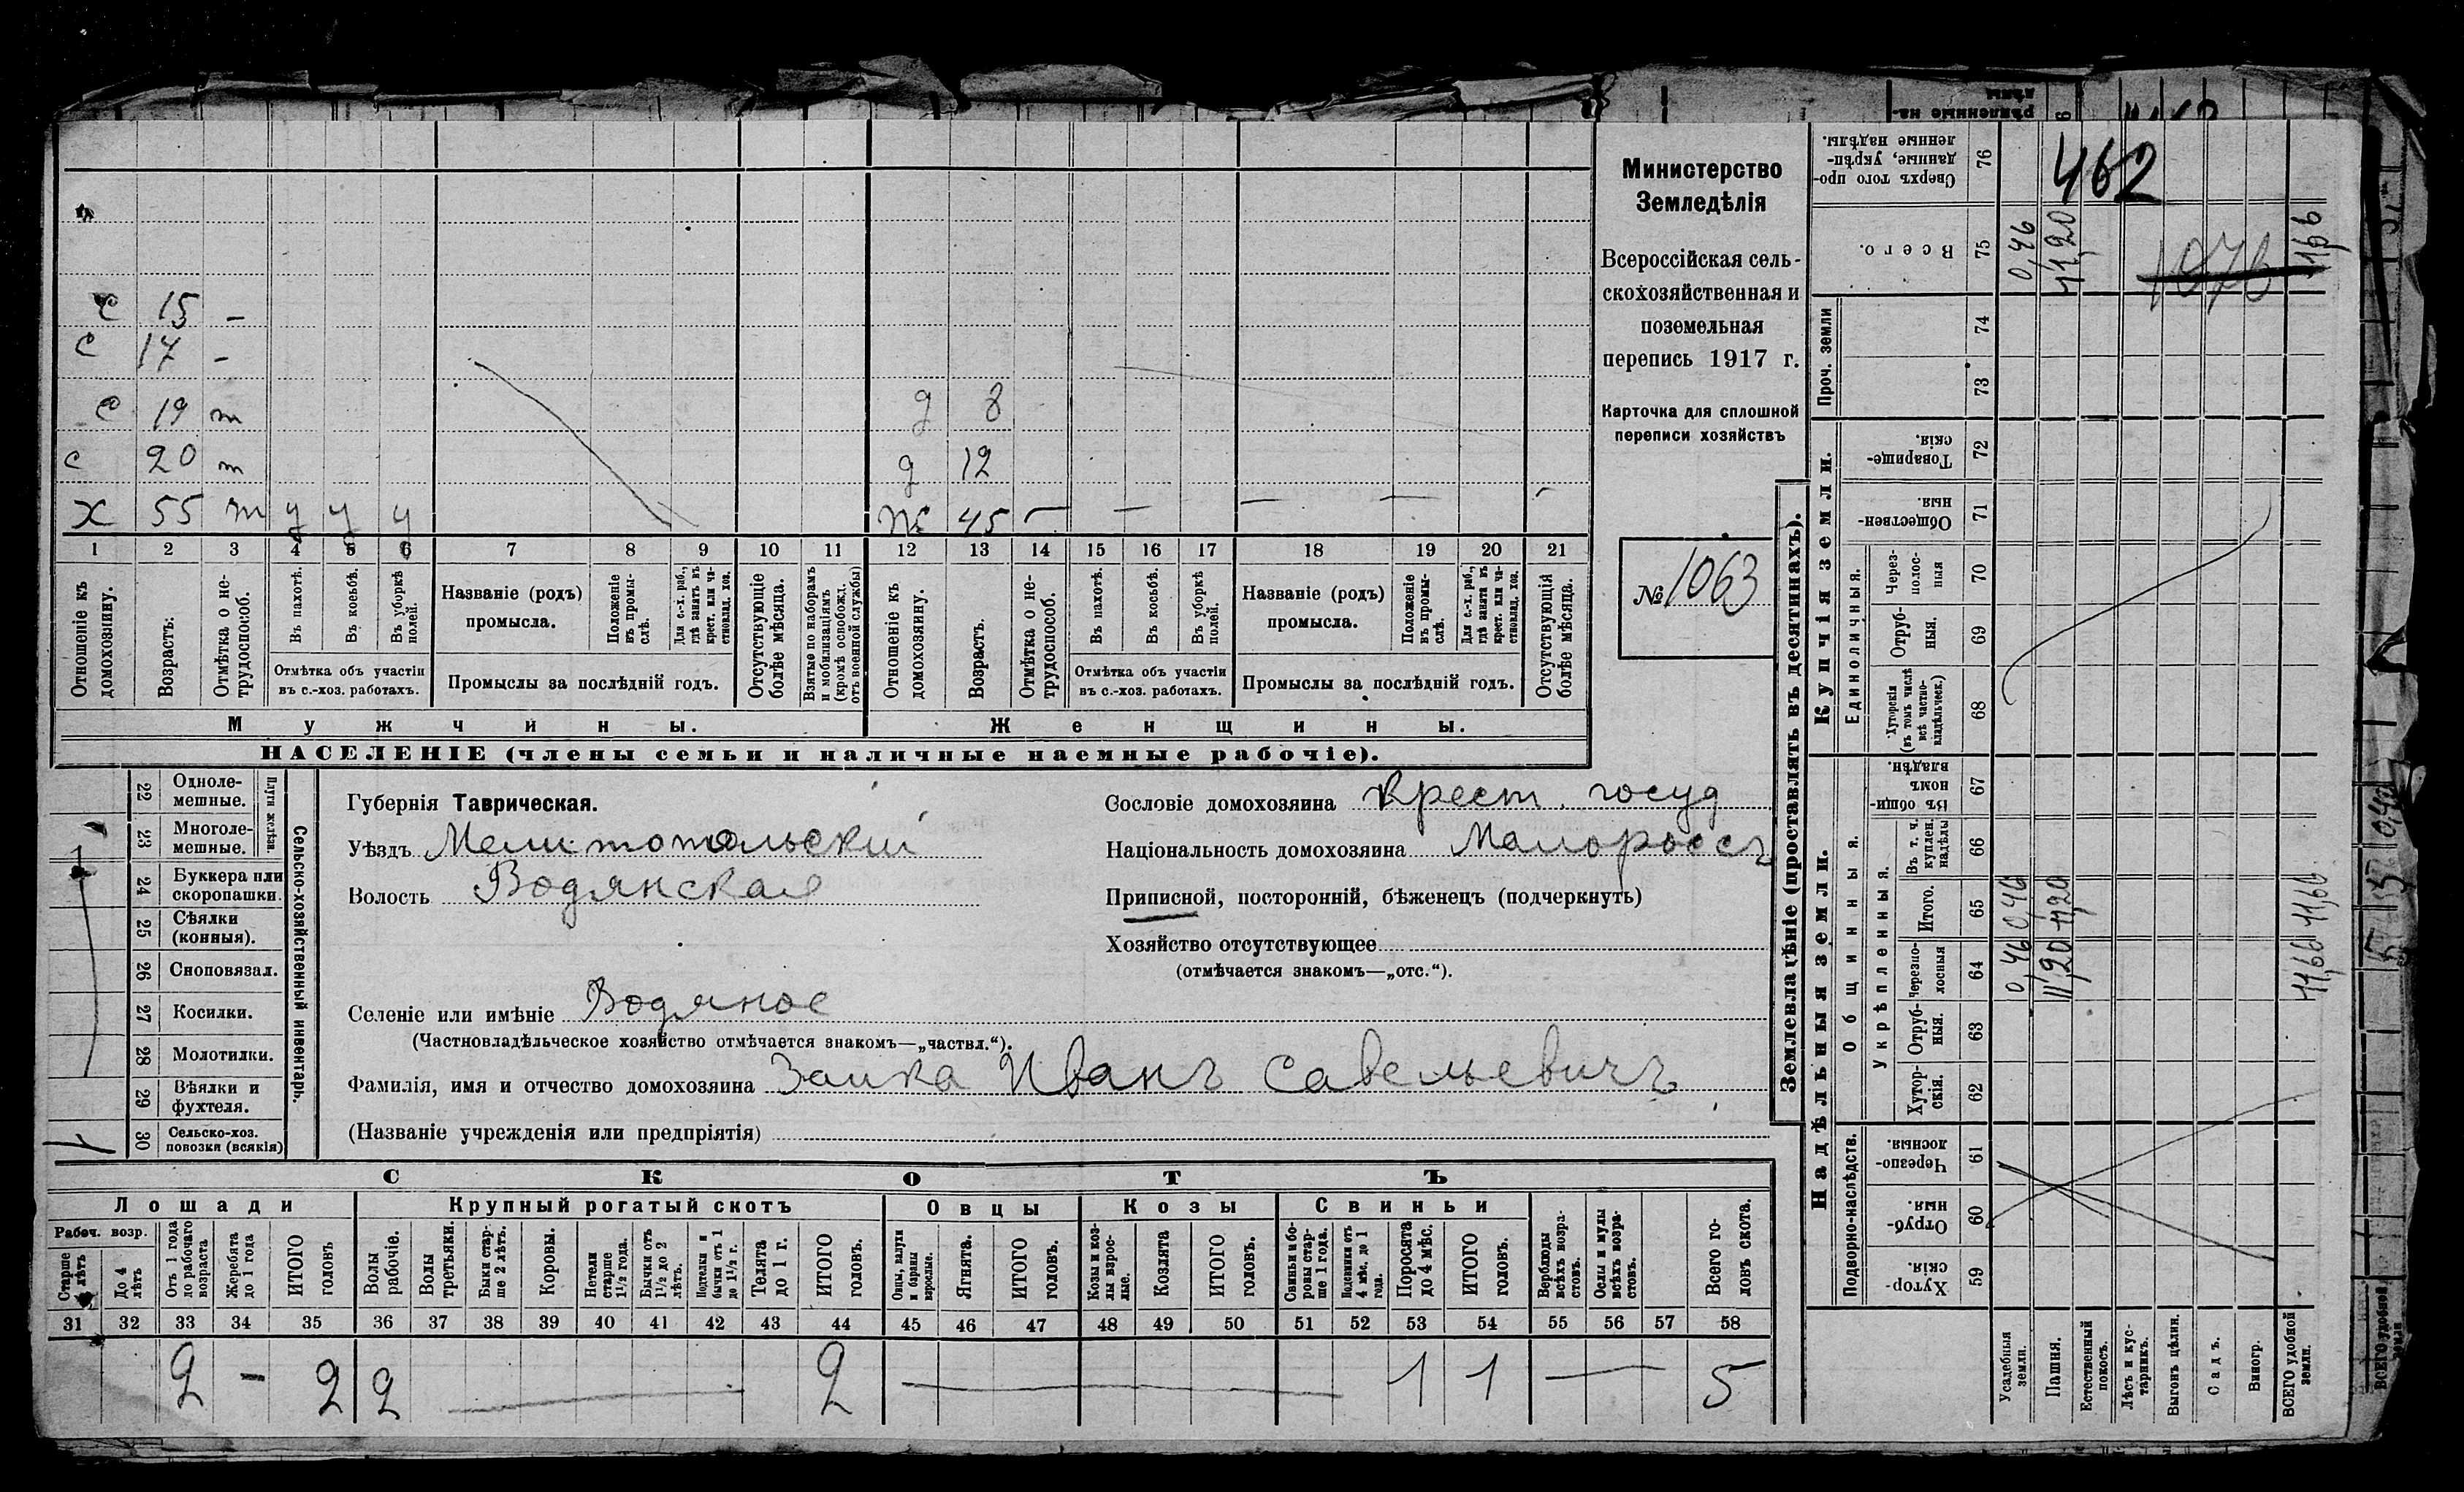 Министерство
Земледѣлія
Всероссійская сель-
скохозяйственная и
поземельная
перепись 1917 г.
Карточка для сплошной
переписи хозяйствъ
№ 1063
с 15 –
с 17 –
с 19 т д 8
с 20 т д 12
х 55 т у у у ж 45 –
1 2 3 4 5 6 7 8 9 10 11 12 13 14 15 16 17 18 19 20 21
Отношеніе къ домохозяину.
Возрастъ.
Отмѣтка о не-трудоспособ.
Въ пахотѣ.
Въ косьбѣ.
Въ уборкѣ полей.
Отмѣтка объ участіи
въ с.-хоз. работахъ.
Названіе (родъ)
промысла.
Положеніе въ промы-слѣ.
Для с.-х. раб., гдѣ занятъ въ крест. или ча-стновлад. хоз.
Промыслы за послѣдній годъ.
Отсутствующіе болѣе мѣсяца.
Взятые по наборамъ и мобилизаціямъ (кромѣ освобожд. отъ военной службы)
Отношеніе къ домохозяину.
Возрастъ.
Отмѣтка о не-трудоспособ.
Въ пахотѣ.
Въ косьбѣ.
Въ уборкѣ полей.
Отмѣтка объ участіи
въ с.-хоз. работахъ.
Названіе (родъ)
промысла.
Положеніе въ промы-слѣ.
Для с.-х. раб., гдѣ занята въ крест. или ча-стновлад. хоз.
Промыслы за послѣдній годъ.
Отсутствующія болѣе мѣсяца.
Мужчины. Женщины.
НАСЕЛЕНІЕ (члены семьи и наличные наемные рабочіе).
Сельско-хозяйственный инвентарь.
Плуги желѣзн.
22 Одноле-мешные.
23 Многоле-мешные.
24 Буккера или скоропашки.
25 Сѣялки (конныя).
26 Сноповязал.
27 Косилки.
28 Молотилки.
29 Вѣялки и фухтеля.
30 Сельско-хоз. повозки (всякія)
Губернія Таврическая.
Уѣздъ Мелитопольскій
Волость Водянская
Сословіе домохозяина Крест. госуд
Національность домохозяина Малороссъ
Приписной, посторонній, бѣженецъ (подчеркнуть)
Хозяйство отсутствующее
(отмѣчается знакомъ—„отс.“).
Селеніе или имѣніе Водяное
(Частновладѣльческое хозяйство отмѣчается знакомъ—„частвл.“).
Фамилія, имя и отчество домохозяина Заика Иванъ Савельевичъ
(Названіе учрежденія или предпріятія)
СКОТЪ
Лошади Крупный рогатый скотъ Овцы Козы Свиньи
Рабоч. возр.
Старше 4 лѣтъ
До 4 лѣтъ
Отъ 1 года до рабочаго возраста
Жеребята до 1 года
ИТОГО головъ
Волы рабочіе.
Волы третьяки.
Быки стар-ше 2 лѣтъ.
Коровы.
Нетели старше 1½ года.
Бычки отъ 1½ до 2 лѣтъ.
Подтелки и бычки отъ 1 до 1½ г.
Телята до 1 г.
ИТОГО головъ.
Овцы, валухи и бараны взрослые.
Ягнята.
ИТОГО головъ.
Козы и коз-лы взрос-лые.
Козлята
ИТОГО головъ.
Свиньи и бо-ровы стар-ше 1 года.
Подсвинки отъ 4 мѣс. до 1 года.
Поросята до 4 мѣс.
ИТОГО головъ.
Верблюды всѣхъ возра-стовъ.
Ослы и мулы всѣхъ возра-стовъ.
Всего го-ловъ скота.
31 32 33 34 35 36 37 38 39 40 41 42 43 44 45 46 47 48 49 50 51 52 53 54 55 56 57 58
2 – 2 2 2 1 1 5
Землевладѣніе (проставлять въ десятинахъ).
462
Сверхъ того про-данные, укрѣп-ленные надѣлы. 76
Всего. 75 0,46 11,20 1076 1166
Проч. земли 74 73
Купчія земли.
Товарище-скія. 72
Обществен-ныя. 71
Единоличныя.
Через-полос-ныя 70
Отруб-ныя. 69
Хуторскія (въ томъ числѣ всѣ частно-владѣльческ.) 68
Надѣльныя земли.
Общинныя.
Въ общи-номъ владѣн. 67
Укрѣпленныя.
Въ т. ч. куплен. надѣлы 66
Итого. 65 0,46 11,20 11,66
Черезпо-лосныя 64 0,46 11,20 11,66
Отруб-ныя. 63
Хутор-скія. 62
Подворно-наслѣдств.
Черезпо-лосныя. 61
Отруб-ныя. 60
Хутор-скія. 59
Усадебныя земли.
Пашня.
Естественный покосъ.
Лѣсъ и кус-тарникъ.
Выгонъ цѣлин.
Садъ.
Виногр.
ВСЕГО удобной земли.
ВСЕГО удобной земли